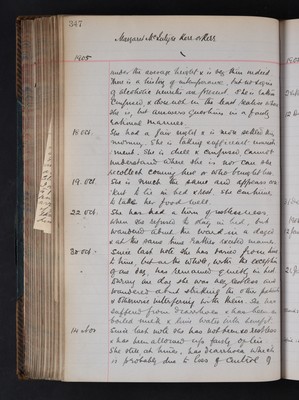 347
1905
under the average height & is very thin indeed.
There is a history of intemperance, but no signs
of alcoholic neuritis are present. She is rather
confused & does not in the least realise where
she is, but answers questions in a fairly
rational manner.
18 Oct. She had a fair night & is more settled this
morning. She is taking sufficient nourish-
-ment. She is dull & confused, cannot
understand where she is nor can she
recollect coming here or who brought her.
19. Oct She is much the same and appears
to lie in bed & rest. She continues
to take her food well.
22 Oct. She has had a turn of restlessness
when she refused to stay in bed, but
wandered about the ward in a dazed
& at the same time rather excited manner.
30 Oct. Since last note she has varied from time
to time, but on the whole, with the exception
of one day, has remained quietly in bed.
During one day she was very restless and
wandered about the other patients
& otherwise interfering with them. She has
suffered from diarrhoea & has been
boiled milk & lime water with benefit.
14 Nov Since last note she has not been so restless
& has been allowed up
She still at times, has diarrhoea which
is probably due to loss of control of